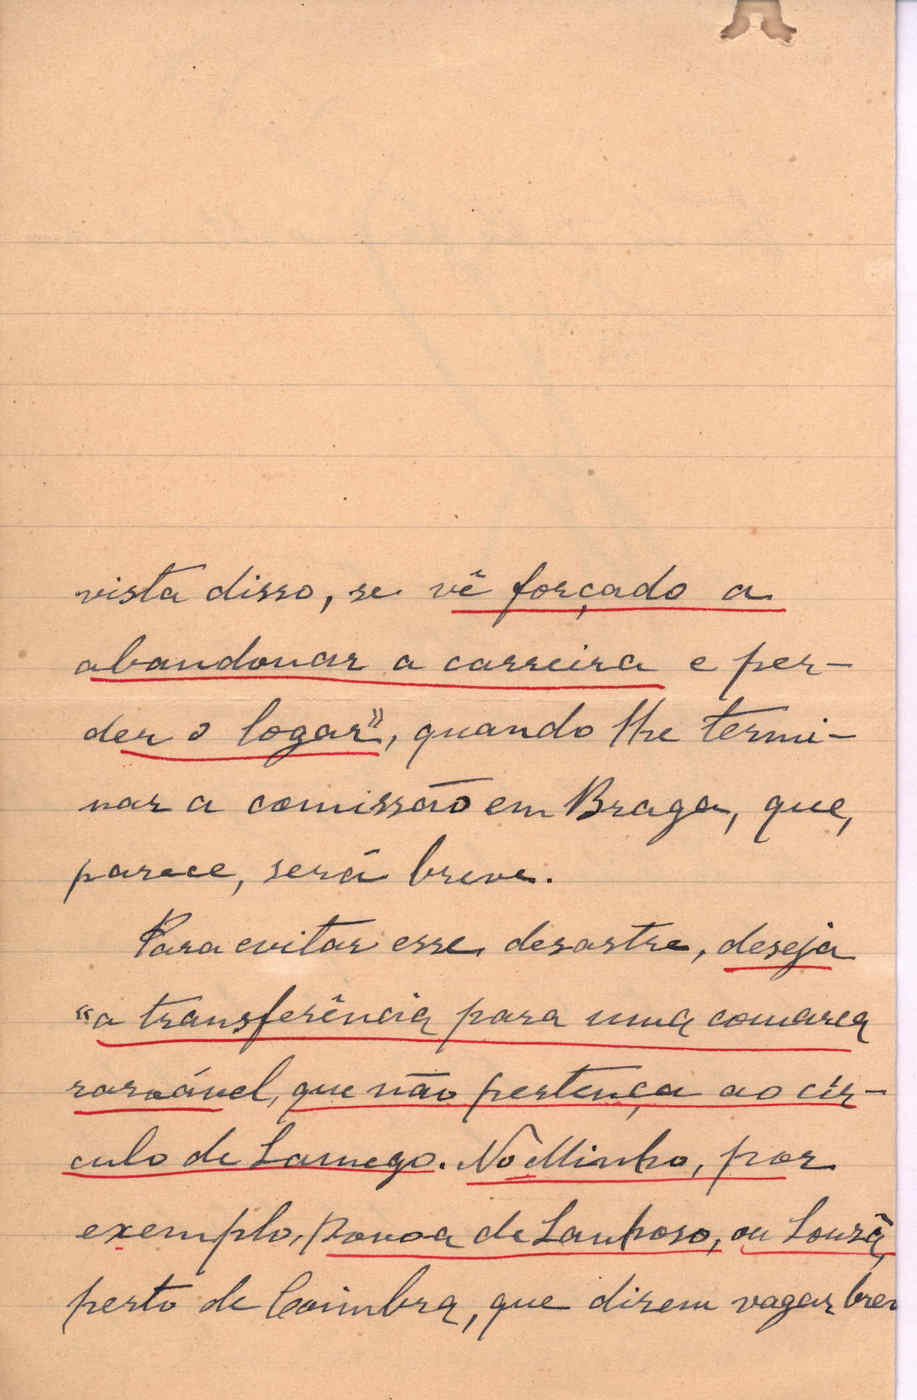 vista disso, se vê forçado a
abandonar a carreira e per-
der o logar", quando lhe termi-
nar a comissão em Braga, que,
parece, será breve.
Para evitar esse desastre, deseja
"a transferência para uma comarca
rasoável, que não pertença ao cír-
culo de Lamego. No Minho, por
exemplo, Povoa de Lanhoso, ou Louzã,
perto de Coimbra, que dizem vagar brev